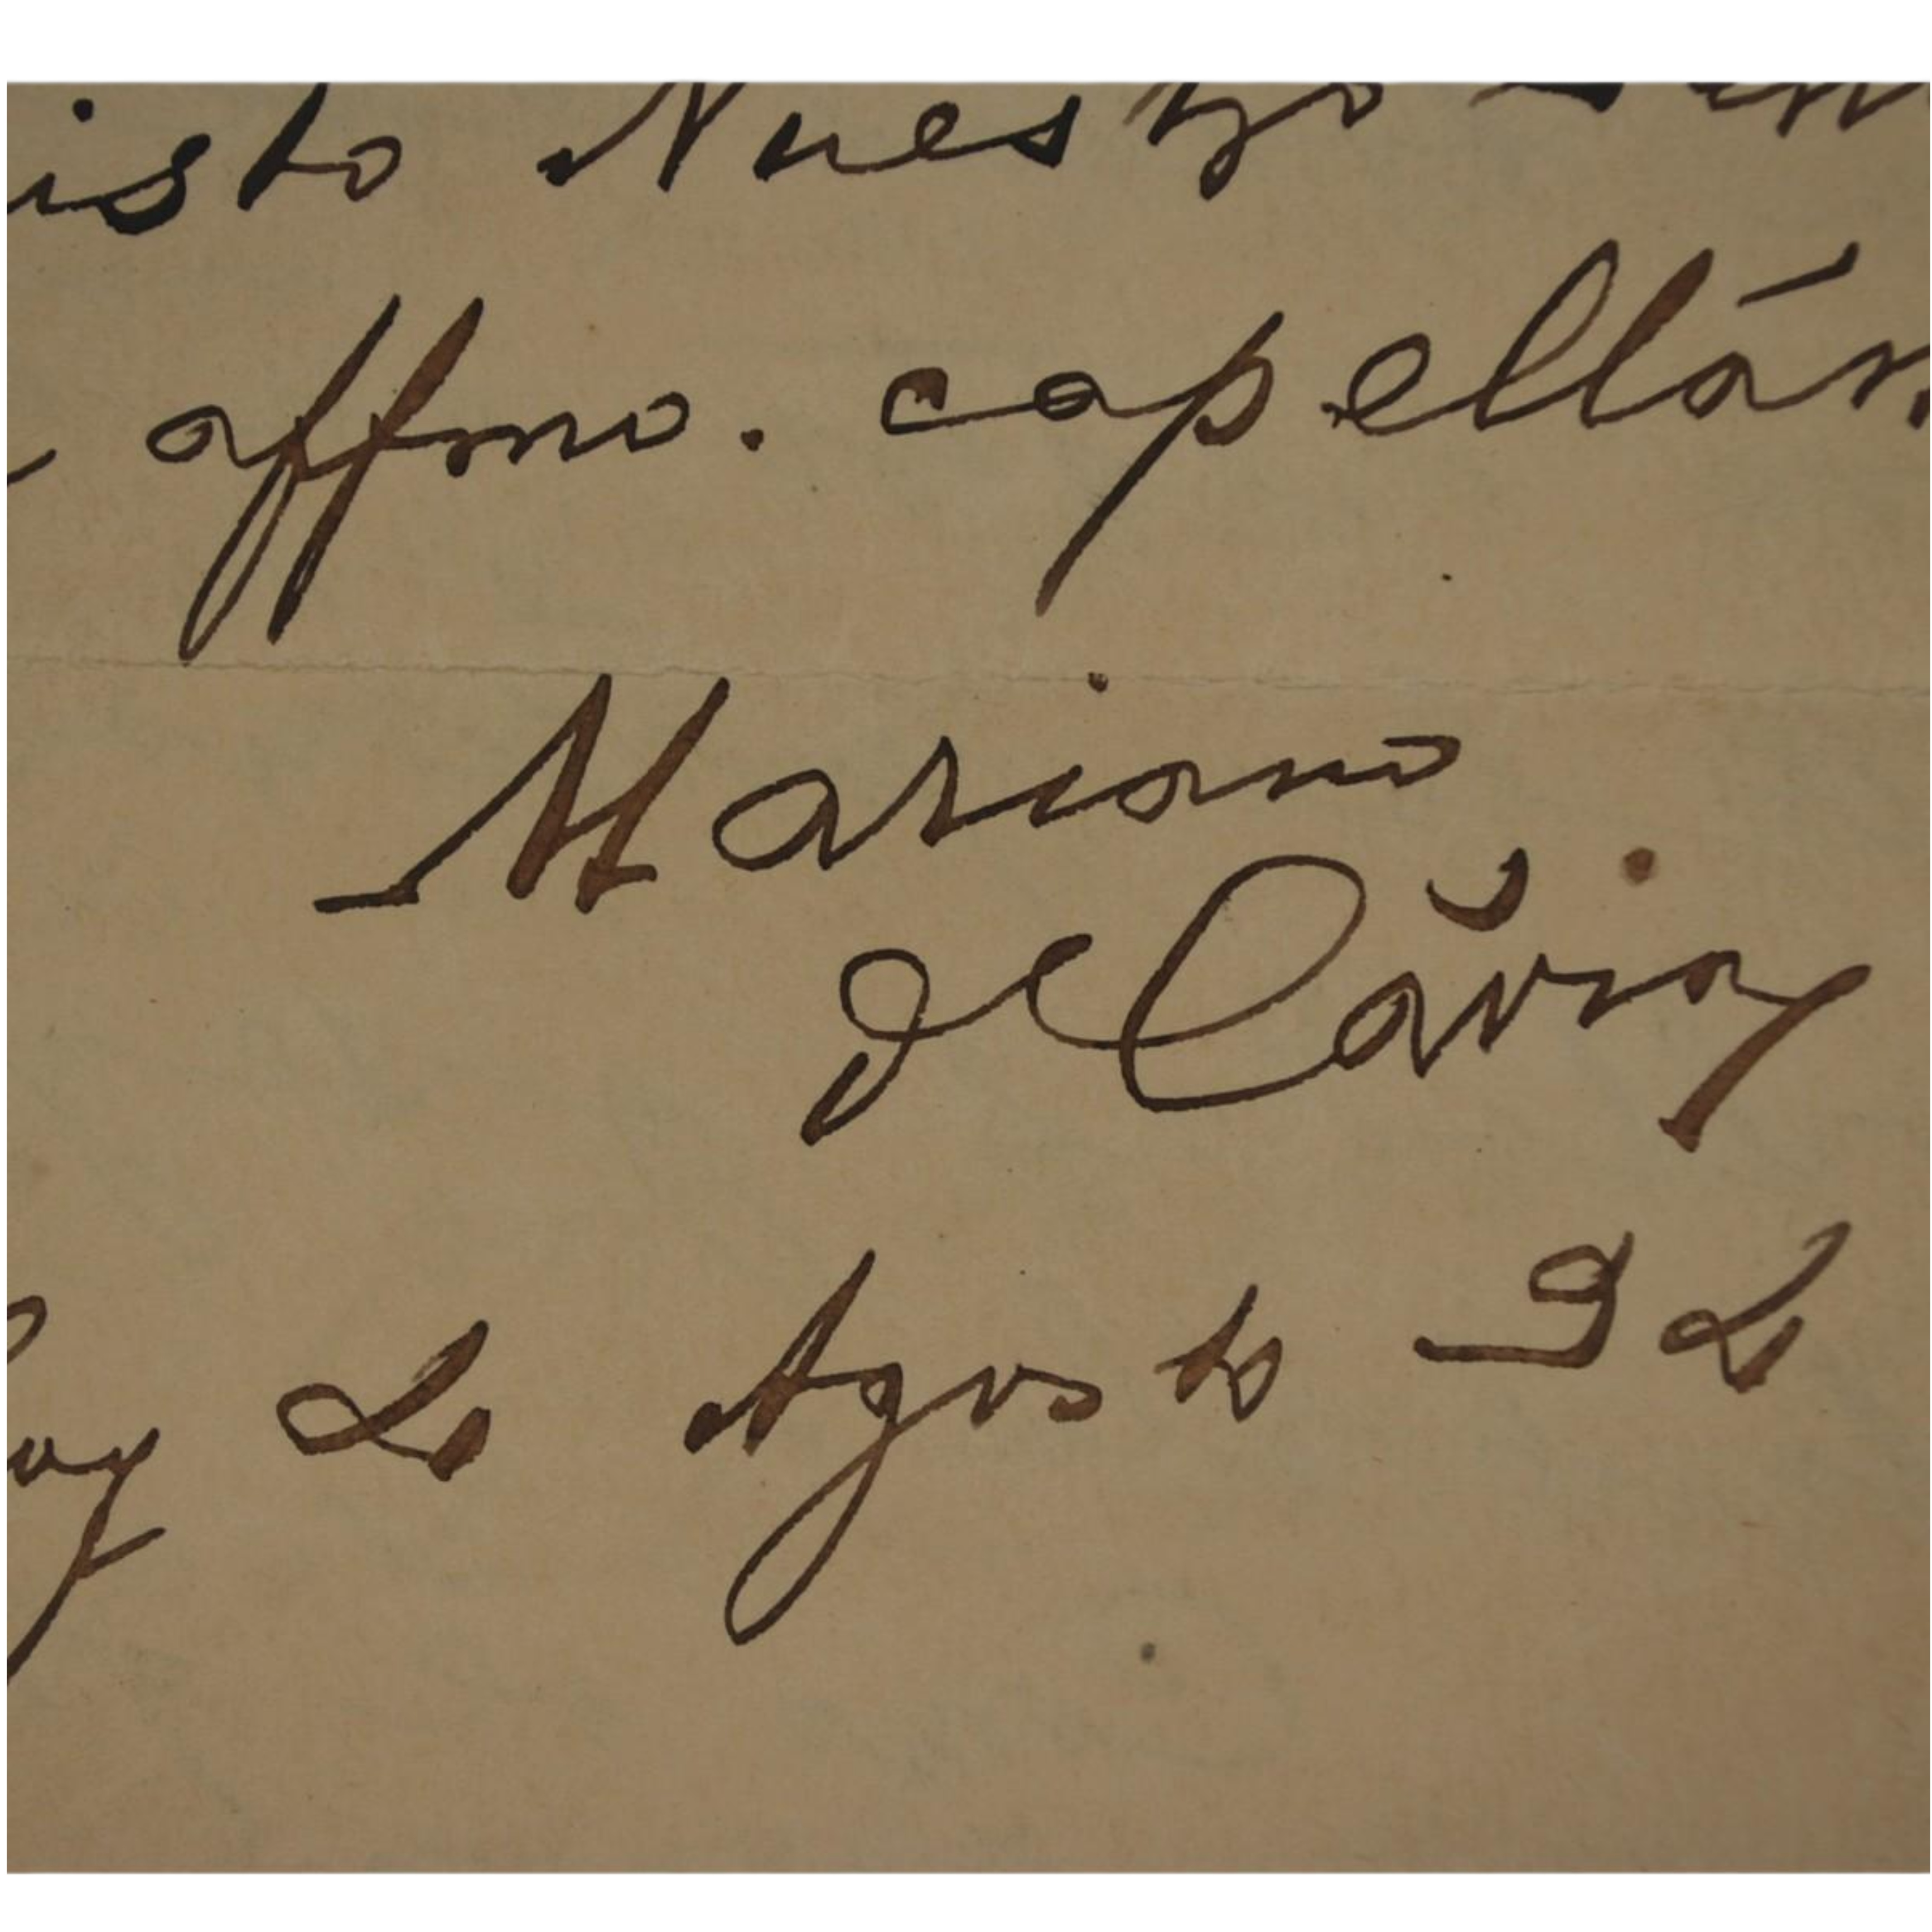 isto Nuestro Señ
affmo. capellán
Mariano
de Cávia
hoy 2 Agosto 92